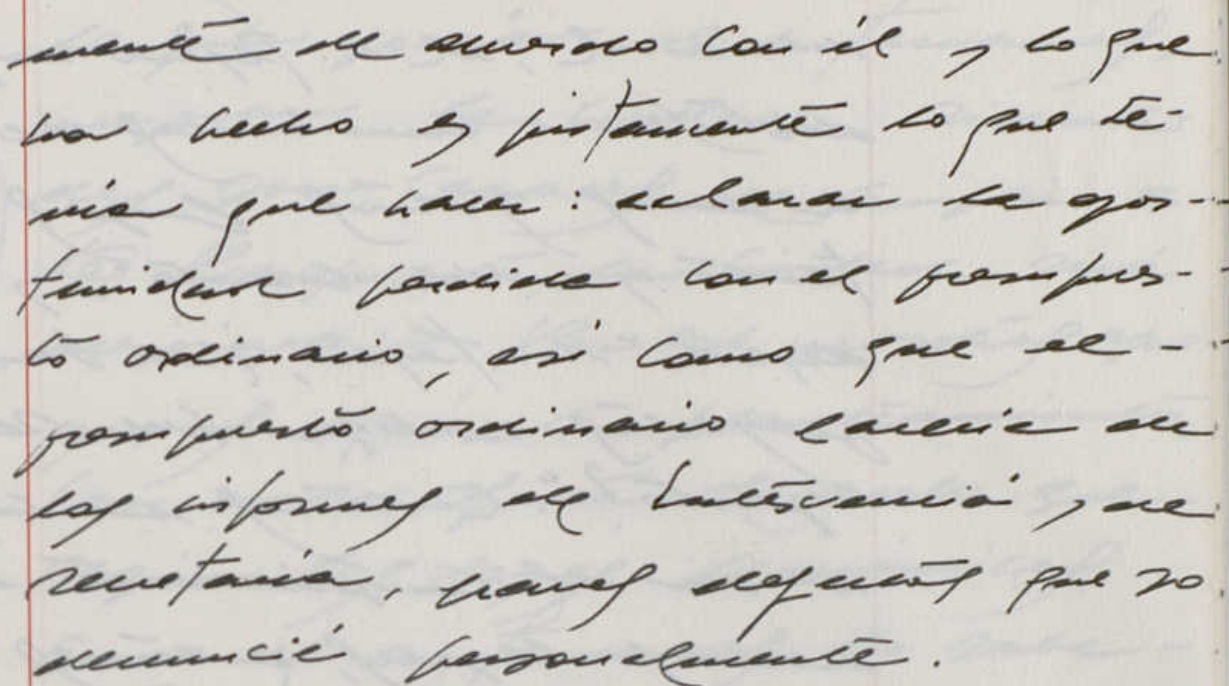 mente de acuerdo con él y lo que
ha hecho es justamente lo que te-
nia que hacer: aclarar la opor-
tunidad perdida con el presupues-
to ordinario, asi como que el -
presupuesto ordinario carecia de
los informes de Intervención y de
Secretaria, graves defectos que yo
denuncié personalmente.